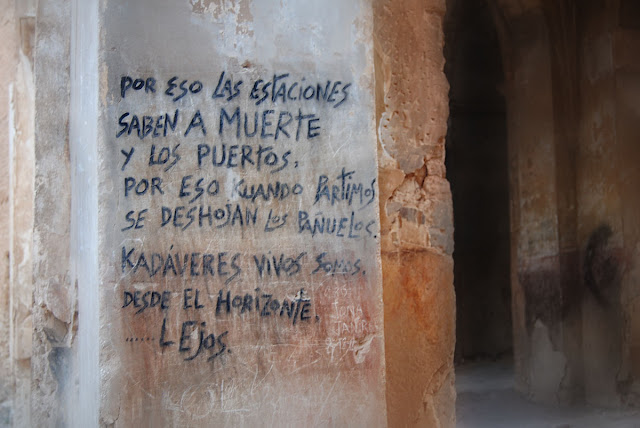 POR ESO LAS ESTACIONES
SABEN A MUERTE
Y LOS PUERTOS.
POR ESO KUANDO PARTIMOS
SE DESHOJAN LOS PAÑUELOS.
KADÁVERES VIVOS SOMOS.
DESDE EL HORIZONTE.
......LEJOS.